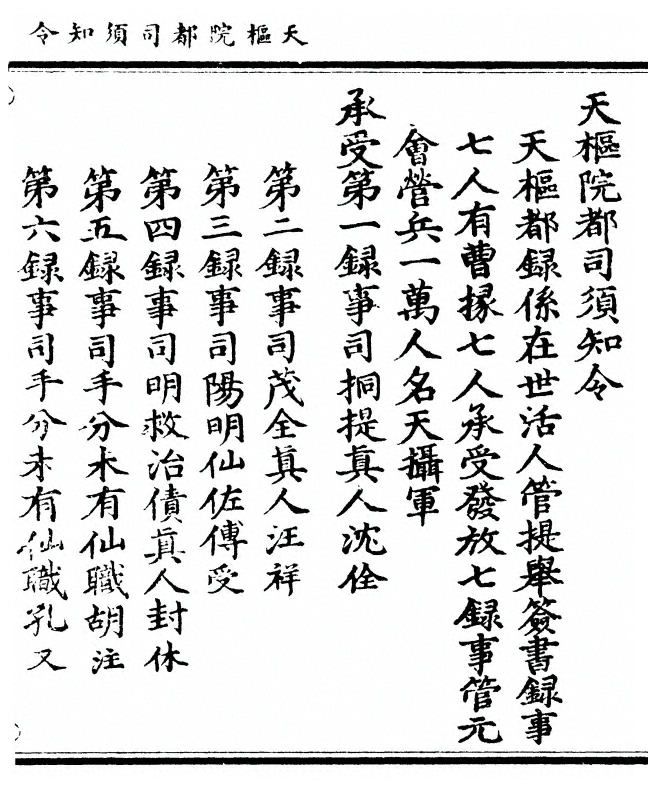 天樞院都司須知令
天樞院都司須知令
天樞都録係在世活人管提舉簽書録事
七人有曹掾七人承受發放七録事管元
會營兵一萬人名天攝軍
承受第一録事司挏提眞人沈佺
第二録事司茂全眞人汪祥
第三録事司陽明仙佐傅受
第四録事司明救治債眞人封休
第五録事司手分未有仙職胡注
第六録事司手分未有仙職孔又